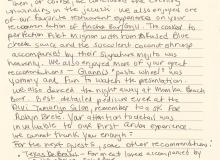 then, of course, we concluded the evening
unwinding in the jacuzzi. We also enjoyed one
of our favorite restaurant experiences on your
recommendation of Pincho Bar/Grill. The cooked to
perfection Filet Mignon with infused Blue
cheese sauce and the succulent coconut shrimp
accompanied by their signature mojito was
heavenly. We also enjoyed more of your great
recommendations - Gianni's "paste wheel" was
yummy and fun to watch the presentation.
We also danced the night away at Mamba Beach
bar. Best detailed pedicure ever at the
Salon, remember to ask for
Robyn Brete. Your attention to detail was
invaluable to our First Aruba experience.
We cannot thank you enough!
For the next guests, some other recommendations:
- Texas de Brazil - For meat lovers accompanied by